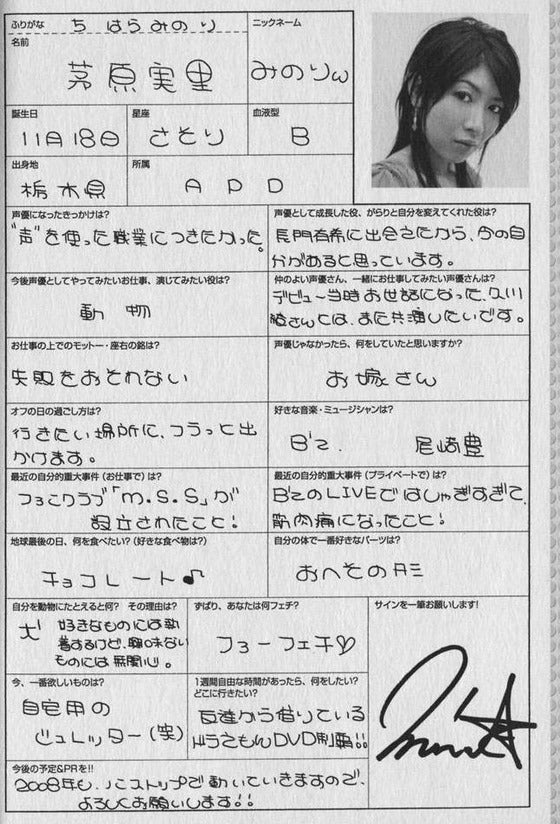 ふりがな ちはらみのり
名前
茅原実里
ニックネーム
みのりん
誕生日
11月18日
星座
さそり
血液型
B
出身地
栃木県
所属
APD
声優になったきっかけは?
"声"を使った職業につきたかった。
声優として成長した役、がらりと自分を変えてくれた役は?
長門有希に出会えたから、今の自
分があると思っています。
今後声優としてやってみたいお仕事、演じてみたい役は?
動物
仲のよい声優さん、一緒にお仕事してみたい声優さんは?
デビュー当時お世話になった、久川
綾さんとは、また共演したいです。
お仕事の上でのモットー・座右の銘は?
失敗をおそれない
声優じゃなかったら、何をしていたと思いますか?
お嫁さん
オフの日の過ごし方は?
行きたい場所に、フラっと出
かけます。
好きな音楽・ミュージシャンは?
B'z. 尾崎豊
最近の自分的重大事件(お仕事で)は?
ファンクラブ「m.s.s」が
設立されたこと!
最近の自分的重大事件(プライベートで)は?
B'zのLIVEではしゃぎすぎて、
筋肉痛になったこと!
地球最後の日、何を食べたい?(好きな食べ物は?)
チョコレート♪
自分の体で一番好きなパーツは?
おへその形
自分を動物にたとえると何? その理由は?
犬 好きなものには執
着するけど、興味ない
ものには無関心。
ずばり、あなたは何フェチ?
フェチ♡
サインを一筆お願いします!
今、一番欲しいものは?
自宅用の
シュレッダー(笑)
1週間自由な時間があったら、何をしたい?
どこに行きたい?
友達から借りている
ドラえもんDVD制覇!!
今後の予定&PRを!!
2008年も、ノンストップで動いていきますので、
よろしくお願いします!!